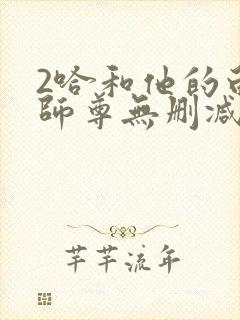 2哈和他的
師尊無删减
芊芊流年